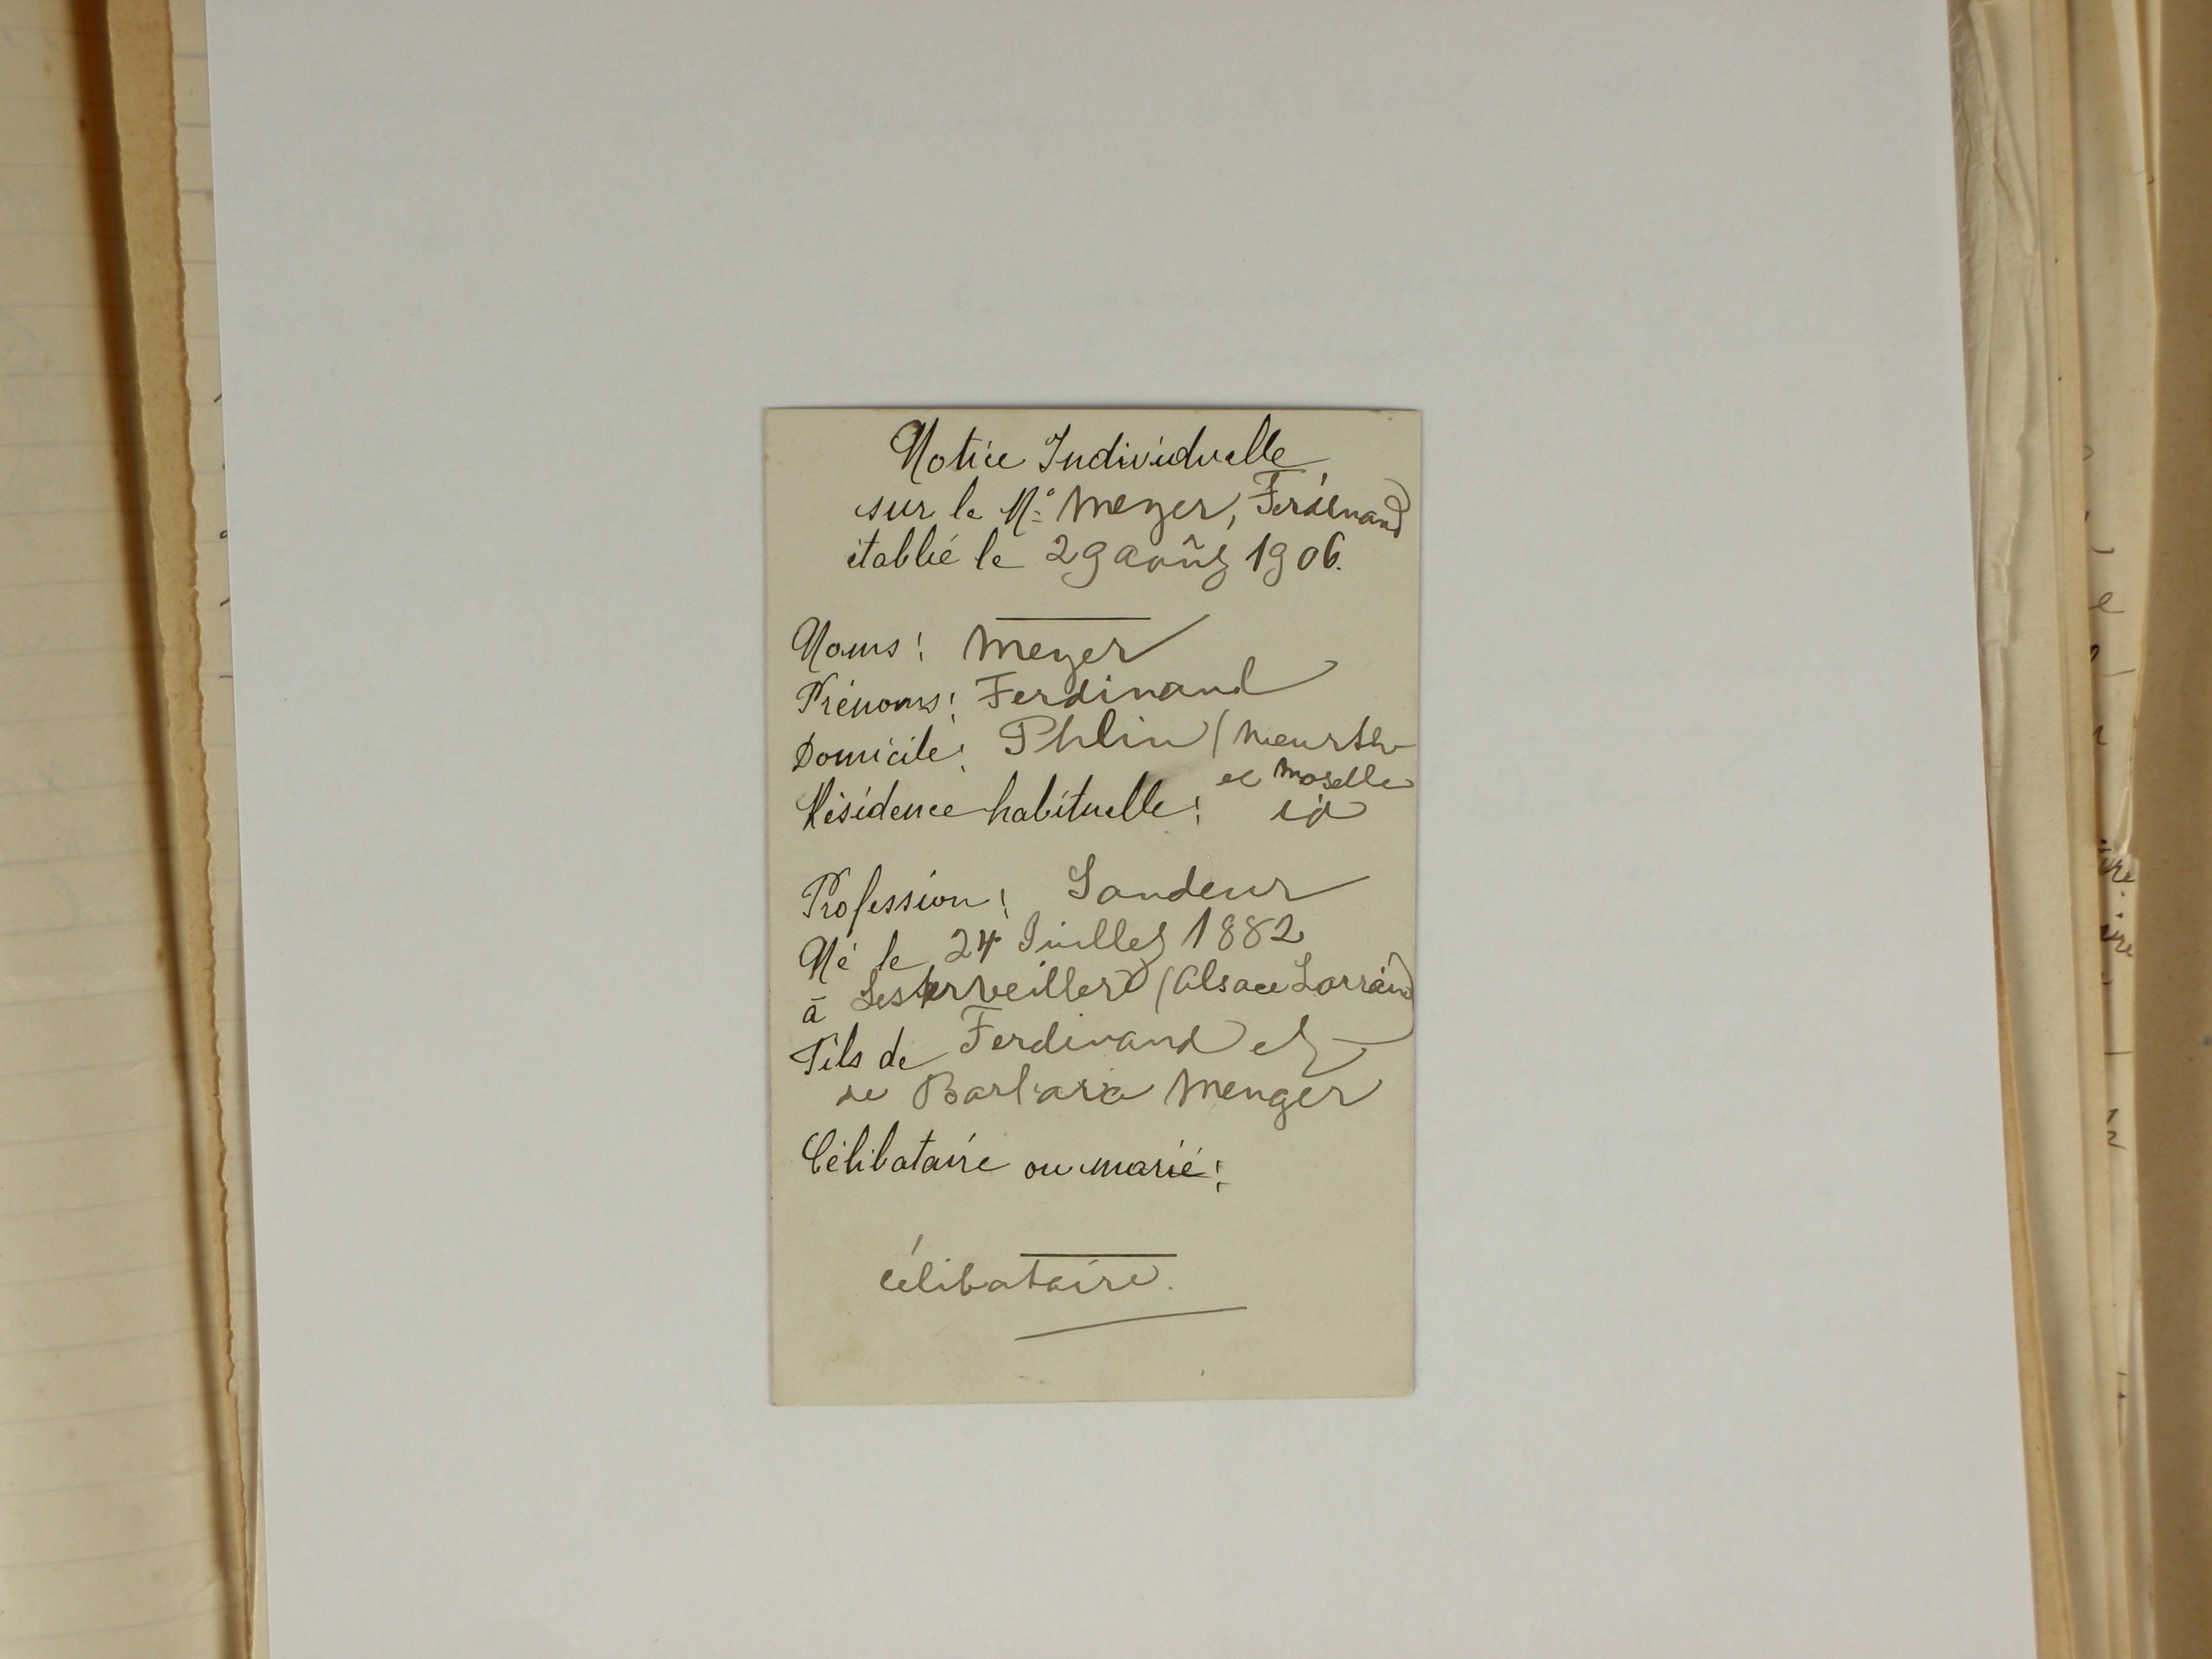 Notice Individuelle
sur le N° Meyer, Ferdinand
établié le 29 août 1906.
Noms: Meyer
Prénoms: Ferdinand
Domicile: Phlin (Meurthe
et Moselle
Résidence habituelle: id
Profession: Sondeur
Né le 24 Juillet 1882
à (Alsace Lorraine)
Fils de Ferdinand et
de Barbara Menger
Célibataire ou marié:
célibataire.